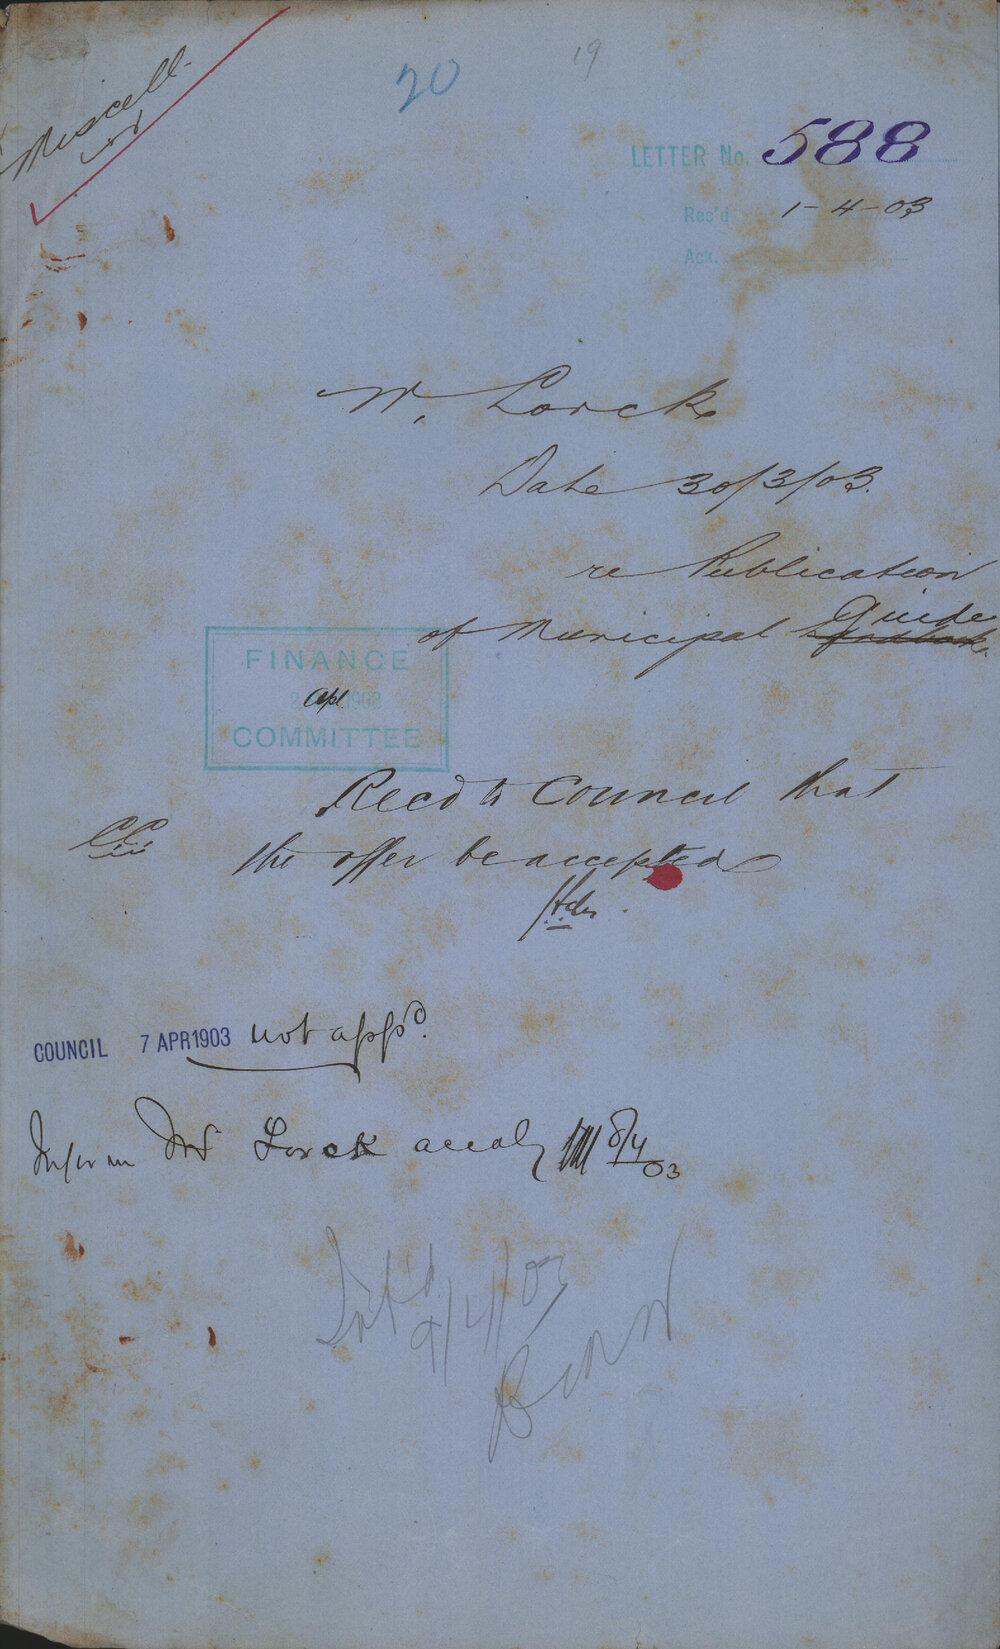 Miscell.
20
19
LETTER No. 588
Rec'd 1-4-03
Ack.
W. Lorck
Date 30/3/03.
re Publication
of Municipal Guide
FINANCE
Apl 1903
COMMITTEE
Recd to Council that
the offer be accepted
COUNCIL 7 APR 1903 not appd.
Inform Mr Lorck accdly 8/4/03
Inf'd
9/4/03